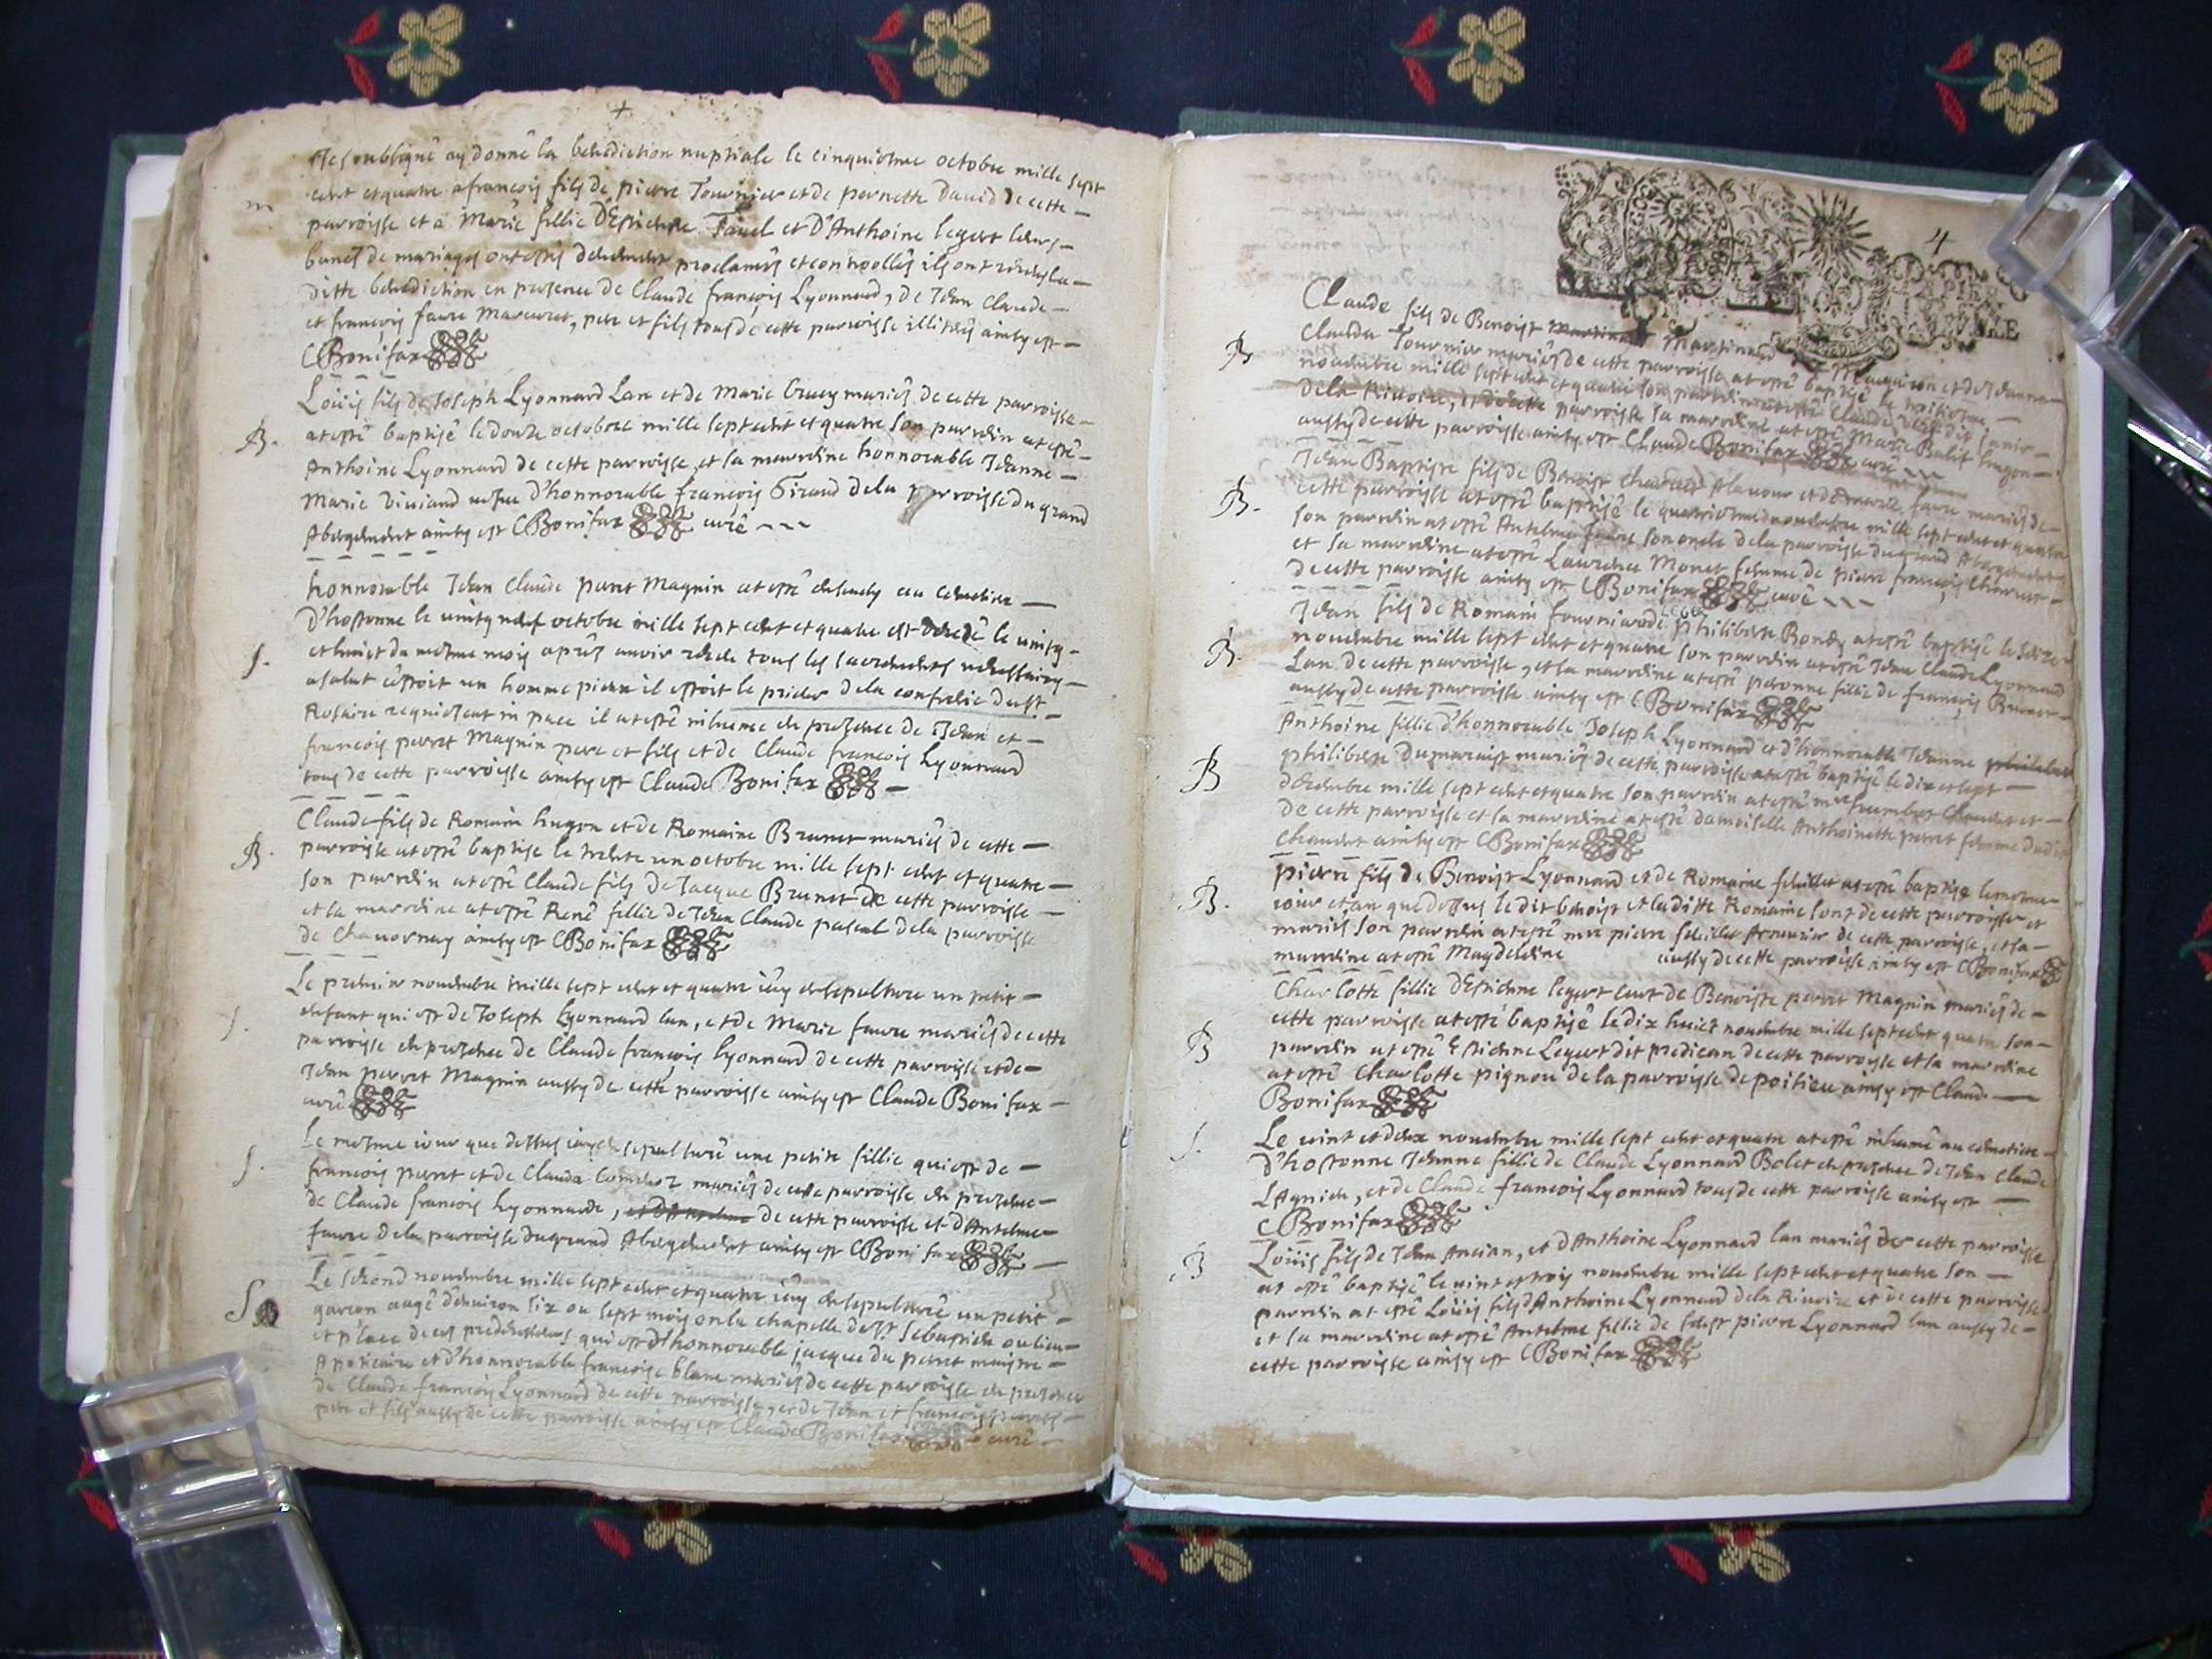 Je soubsigné ay donné la benediction nuptiale le cinquiesme octobre mille sept
cent et quatre a françois fils de pierre Tournier et de pernette david de cette
m
parroisse et a Marie fillie D'Estienne Favel et D'Anthoine legert leurs
bancs de mariages ont estés deuement proclamés et controollés ils ont receus la
ditte benediction en presence de Claude françois Lyonnard, de Jean Claude
et françois faure Marcuret, pere et fils tous de cette parroisse illitrés ainsy est
CBonifax
Loüis fils de Joseph Lyonnard Lan et de Marie Cruey mariés de cette parroisse
B.
at esté baptisé le douze octobre mille sept cent et quatre son parrein at esté
Anthoine Lyonnard de cette parroisse et sa marreine honnorable Jeanne
Marie Viviand vefue d'honnorable françois Giraud de la parroisse du grand
Abergement ainsy est CBonifax curé
honnorable Jean Claude perret Magnin at esté ensevely au cemetiere
D'hostonne le vinty neuf octobre mille sept cent et quatre est decedé le vinty
S.
et huict du mesme mois aprés avoir receu tous les sacrements necessaires
a salut c'estoit un homme pieux il estoit le prieur de la confrerie du st
Rosaire requiescat in pace il at esté inhumé en presence de Jean et
françois perret Magnin pere et fils et de Claude françois Lyonnard
tous de cette parroisse ainsy est Claude Bonifax
Claude fils de Romain hugon et de Romaine Brunet mariés de cette
B.
parroisse at esté baptisé le trente un octobre mille sept cent et quatre
son parrein at esté Claude fils de Jacque Brunet de cette parroisse
et sa marreine at esté René fillie de Jean Claude pascal de la parroisse
de Chavornay ainsy est CBonifax
Le premier novembre mille sept cent et quatre i'ay ensepulturé un petit
S.
enfant qui est de Joseph Lyonnard lan, et de Marie faure mariés de cette
parroisse en presence de Claude françois Lyonnard de cette parroisse et de
Jean perret Magnin aussy de cette parroisse ainsy est Claude Bonifax
curé
Le mesme iour que dessus i'ay ensepulturé une petite fillie qui est de
S.
françois perret et de Claude mariés de cette parroisse en presence
de Claude françois Lyonnarde, de cette parroisse et d'Antelme
faure de la parroisse du grand Abergement ainsy est CBonifax
Le second novembre mille sept cent et quatre i'ay ensepulturé un petit
S
garcon aagé d'environ six ou sept mois en la chapelle de st Sebastien au lieu
et place de ses predecesseurs qui est d'honnorable jacque du perret maistre
Apoticaire et d'honnorable françoise blanc mariés de cette parroisse en presence
de Claude françois Lyonnard de cette parroisse, et de Jean et françois perret
pere et fils aussy de cette parroisse ainsy est Claude Bonifax curé
4
Claude fils de Benoist Martinand et de Jeanne
Claude Tournier mariés de cette parroisse at esté baptisé le troisiesme
B
novembre mille sept cent et quatre son parrein at esté Claude dit Janir
de la Rivoire, et de cette parroisse sa marreine at esté Marie Balif hugon
aussy de cette parroisse ainsy est Claude Bonifax curé
Jean Baptiste fils de Benoist Charvet Alavour et de faure mariés de
B.
cette parroisse at esté baptisé le quatriesme novembre mille sept cent et quatre
son parrein at esté Antelme faure son oncle de la parroisse du grand Abergement
et sa marreine at esté Laurence Monet femme de pierre françois Charvet
de cette parroisse ainsy est CBonifax curé
Jean fils de Romain fournier et de philiberte Bondy at esté baptisé le seize
B.
novembre mille sept cent et quatre son parrein at esté Jean Claude Lyonnard
Lan de cette parroisse, et sa marreine at esté peronne fillie de françois Brunet
aussy de cette parroisse ainsy est CBonifax
Anthoine fillie d'honnorable Joseph Lyonnard et d'honnorable Jeanne
B
philiberte Dumaraist mariés de cette parroisse at esté baptisé le dix et sept
decembre mille sept cent et quatre son parrein at esté mre humbert Chaudet et
de cette parroisse et sa marreine at esté damoiselle Anthoinette perret femme dudit
Chaudet ainsy est CBonifax
pierre fils de Benoist Lyonnard et de Romaine feuillet at esté baptisé le mesme
B.
iour et an que dessus le dit benoist et la ditte Romaine sont de cette parroisse et
mariés son parrein at esté mre pierre feuillet de cette parroisse, et sa
marreine at esté Magdeleine aussy de cette parroisse ainsy est CBonifax
Charlotte fillie d'Estienne legert et de Benoiste perret Magnin mariés de
B
cette parroisse at esté baptisé le dix huict novembre mille sept cent quatre son
parrein at esté Estienne Legert dit predican de cette parroisse et sa marreine
at esté Charlotte pignou de la parroisse de poisieu ainsy est Claude
Bonifax
Le vint et deux novembre mille sept cent et quatre at esté inhumé au cemetiere
S.
D'hostonne Jeanne fillie de Claude Lyonnard Bolet en presence de Jean Claude
L'Agnieu, et de Claude françois Lyonnard tous de cette parroisse ainsy est
CBonifax
Loüis fils de Jean Ancian, et d'Anthoine Lyonnard lan mariés de cette parroisse
B
at esté baptisé le vint et trois novembre mille sept cent et quatre son
parrein at esté Loüis fils d'Anthoine Lyonnard de la Rivoire et de cette parroisse
et sa marreine at esté Antelme fillie de feust pierre Lyonnard lan aussy de
cette parroisse ainsy est CBonifax